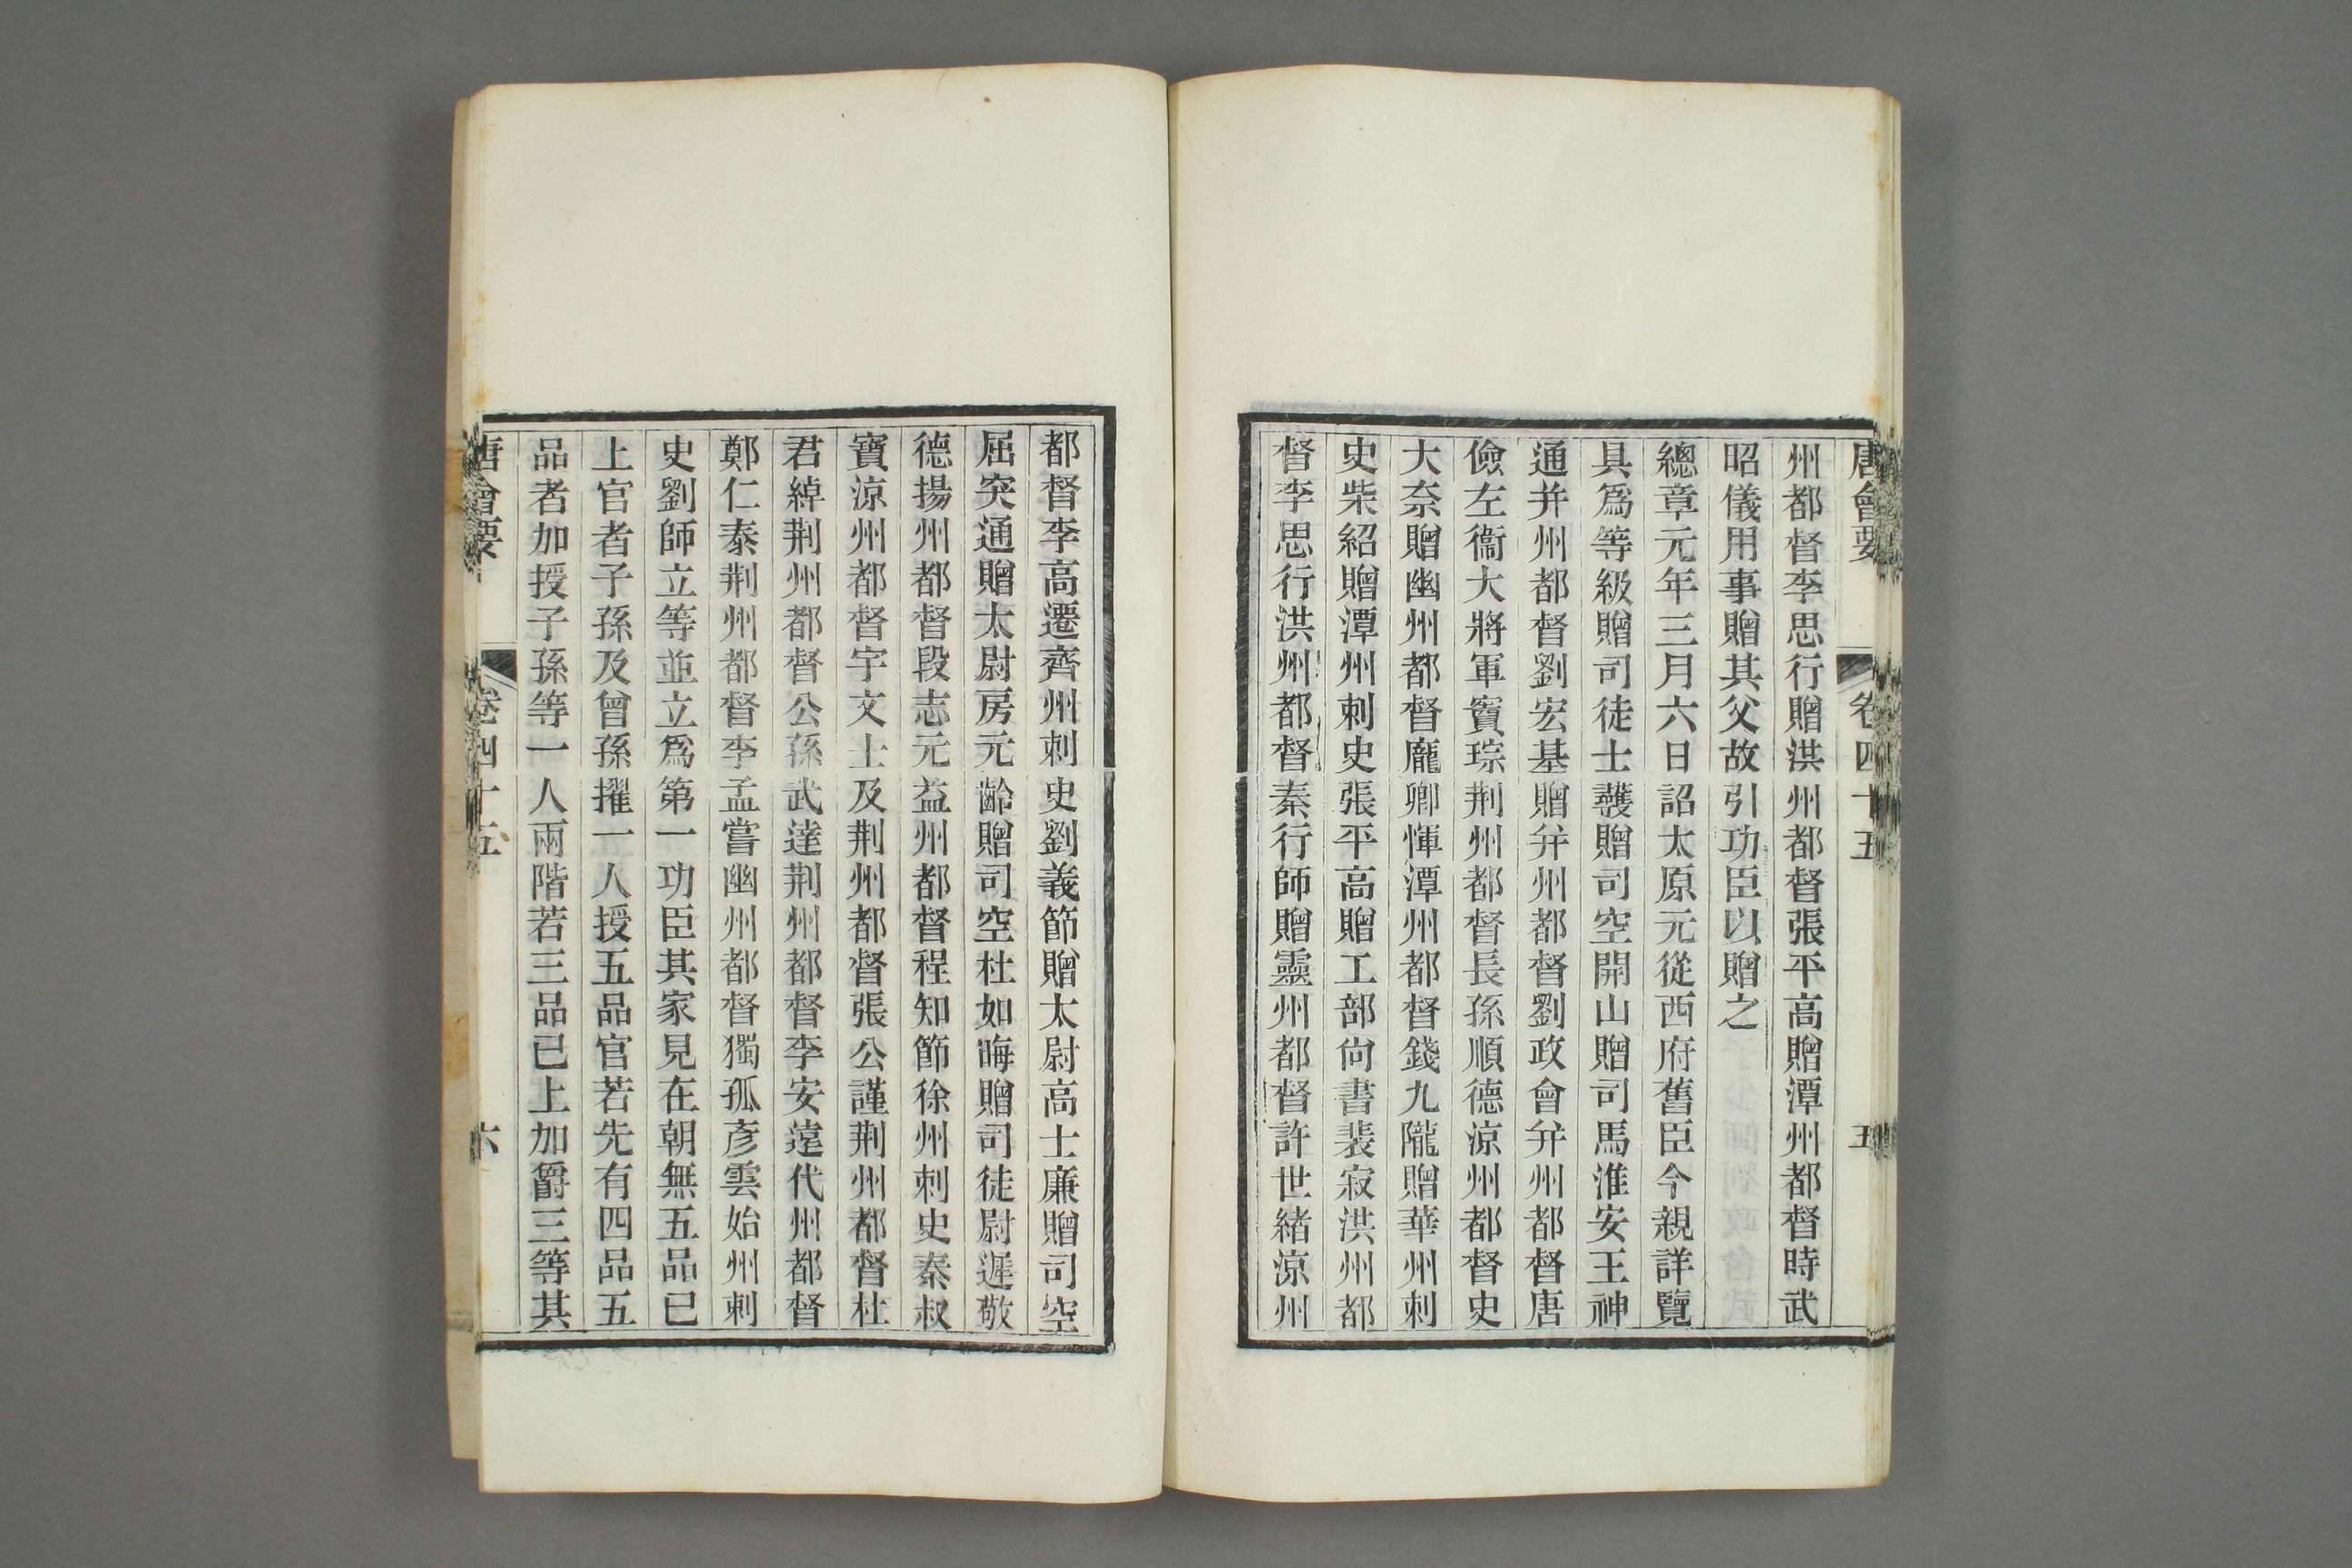 唐會要 卷四十五 五
州都督李思行贈洪州都督張平高贈潭州都督時武
昭儀用事贈其父故引功臣以贈之
總章元年三月六日詔太原元從西府舊臣今親詳覽
具爲等級贈司徒士彠贈司空開山贈司馬淮安王神
通并州都督劉宏基贈并州都督劉政會并州都督唐
儉左衞大將軍竇琮荆州都督長孫順德涼州都督史
大奈贈幽州都督龐卿惲潭州都督錢九隴贈華州刺
史柴紹贈潭州刺史張平高贈工部尙書裴寂洪州都
督李思行洪州都督秦行師贈靈州都督許世緒涼州
都督李高遷齊州刺史劉義節贈太尉高士廉贈司空
屈突通贈太尉房元齡贈司空杜如晦贈司徒尉遲敬
德揚州都督段志元益州都督程知節徐州刺史秦叔
寶涼州都督宇文士及荆州都督張公謹荆州都督杜
君綽荆州都督公孫武達荆州都督李安遠代州都督
鄭仁泰荆州都督李孟嘗幽州都督獨孤彥雲始州刺
史劉師立等並立爲第一功臣其家見在朝無五品已
上官者子孫及曾孫擢一人授五品官若先有四品五
品者加授子孫等一人兩階若三品已上加爵三等其
唐會要 卷四十五 六